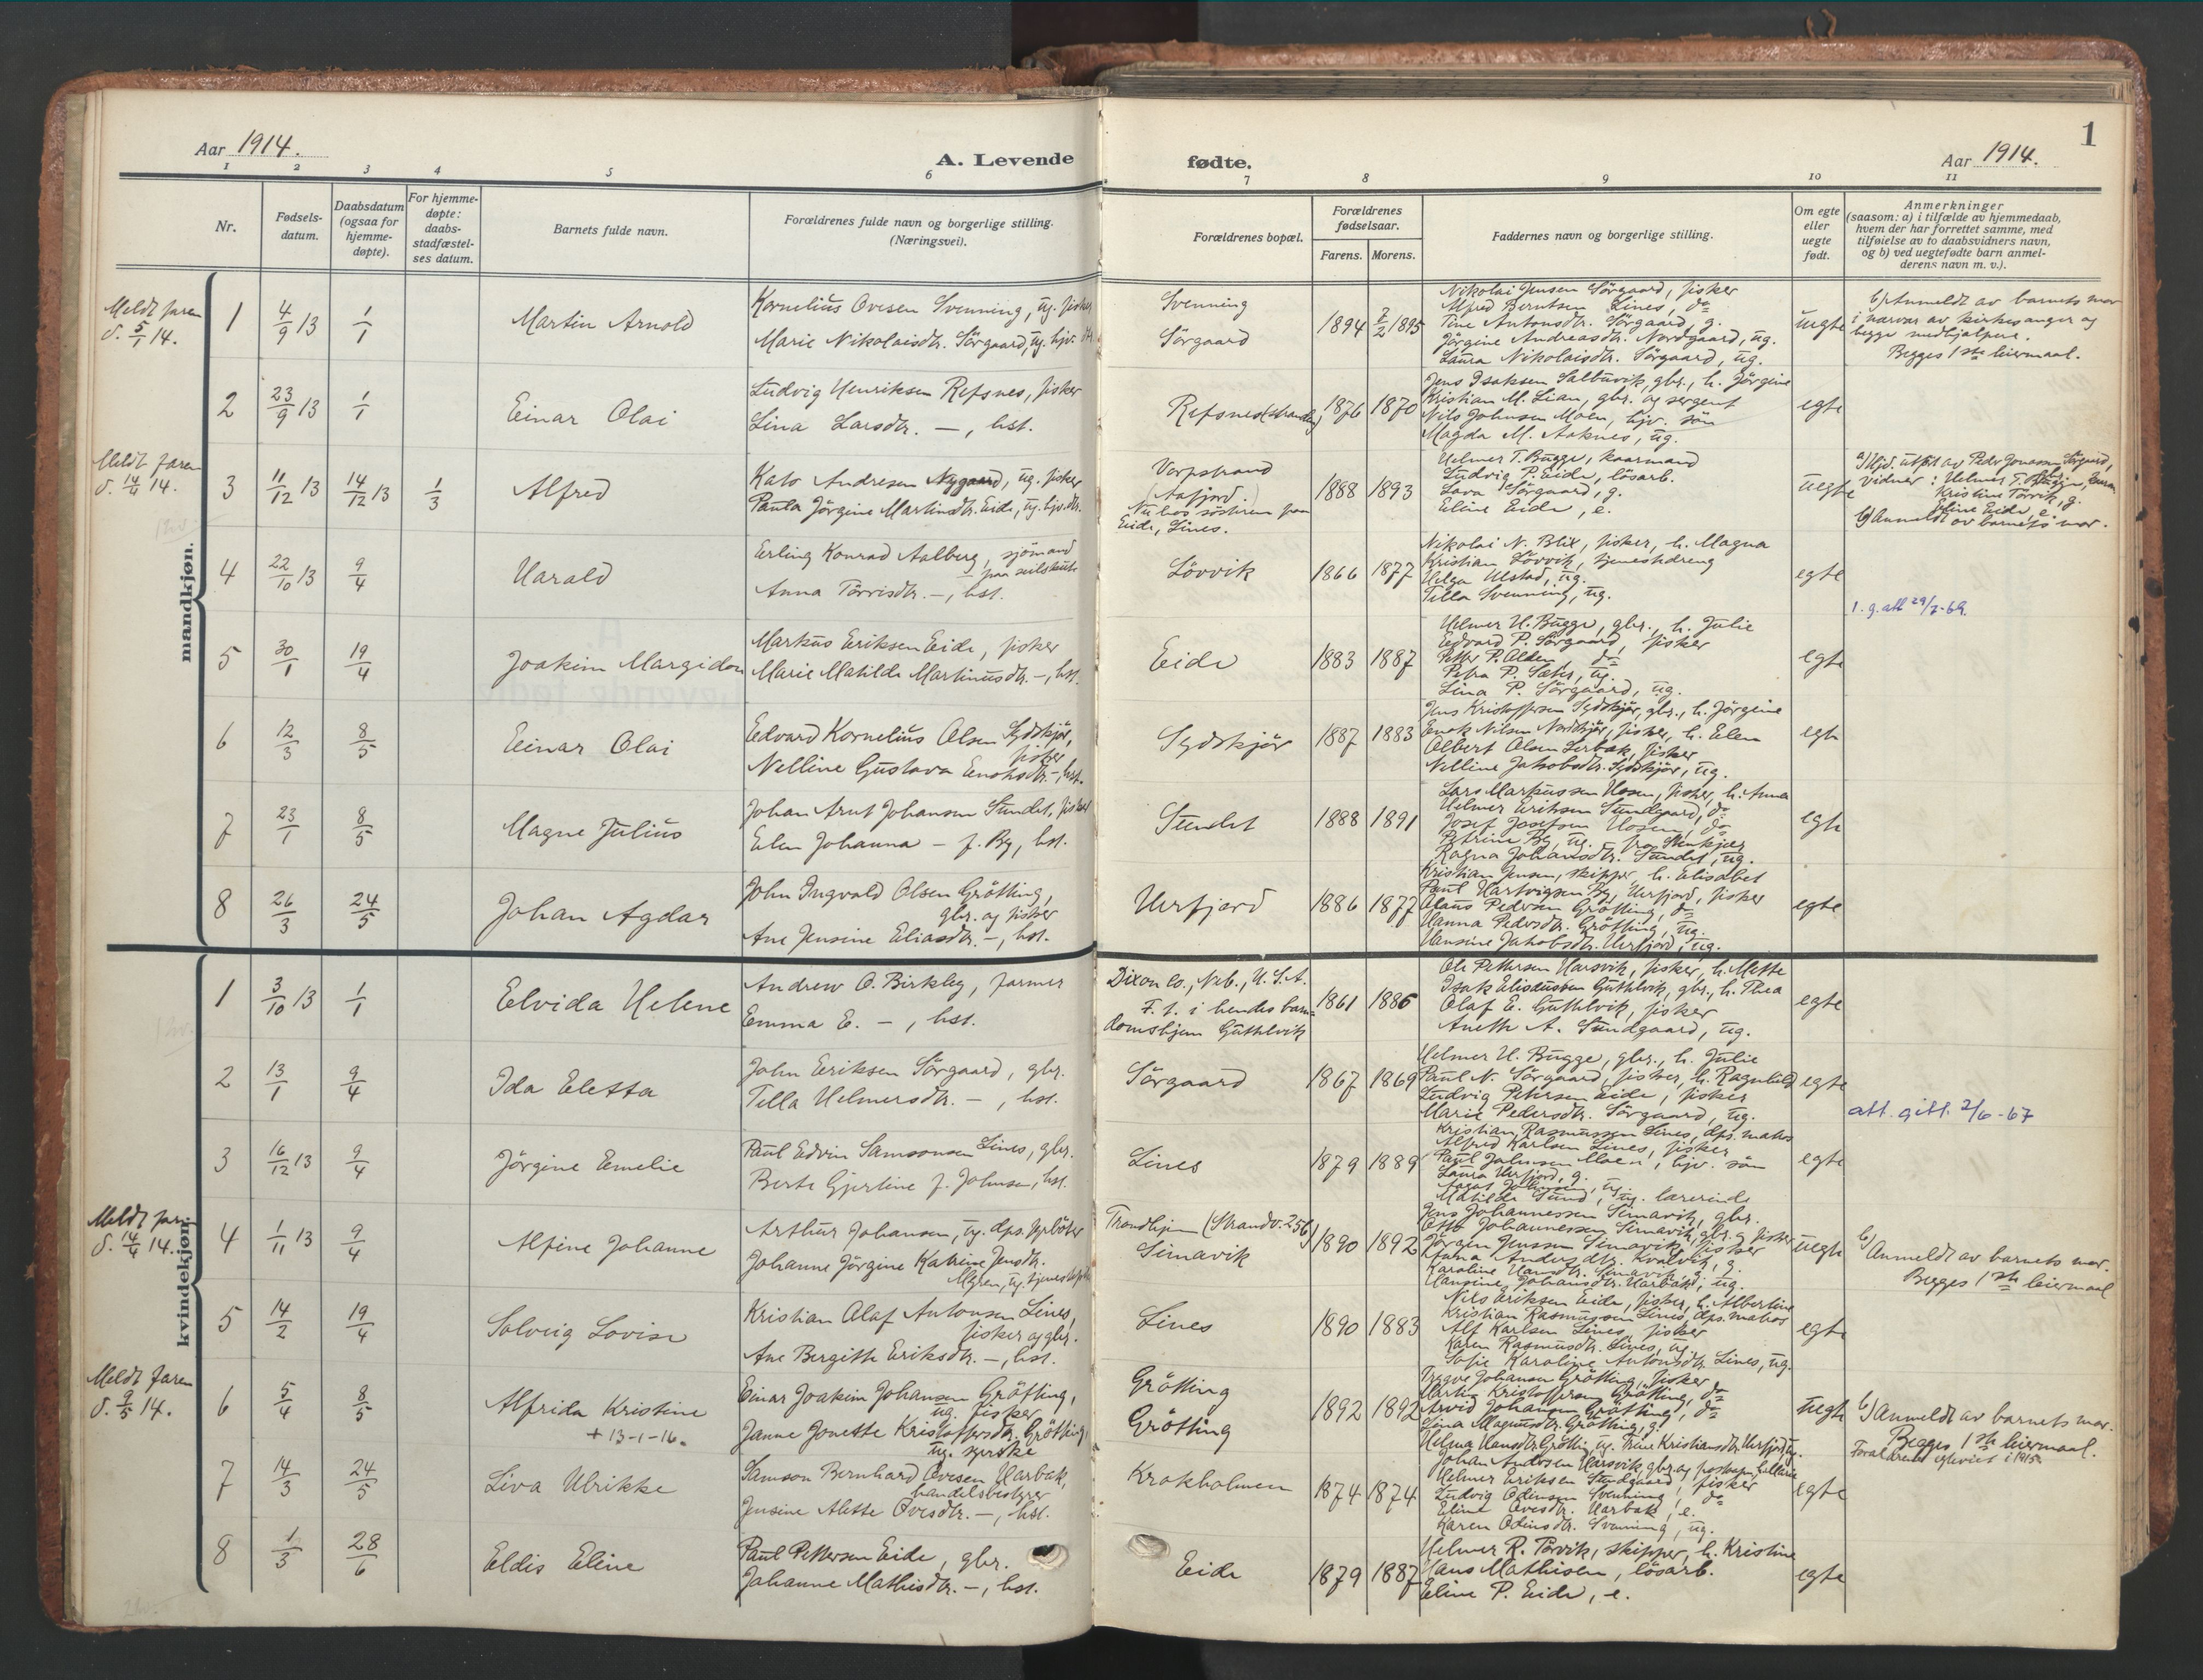 1
Aar 1914.
A. Levende
fødte.
Aar 1914.
1 2 3 4 5 6 7 8 9 10 11
Nr.
Fødsels-
datum.
Daabsdatum
(ogsaa for
hjemme-
døpte).
For hjemme-
døpte:
daabs-
stadfæstel-
ses datum.
Barnets fulde navn.
Forældrenes fulde navn og borgerlige stilling.
(Næringsvei).
Forældrenes bopæl.
Forældrenes
fødselsaar.
Farens. Morens.
Faddernes navn og borgerlige stilling.
Om egte
eller
uegte
født.
Anmerkninger
(saasom: a) i tilfælde av hjemmedaab,
hvem der har forrettet samme, med
tilføielse av to daabsvidners navn,
og b) ved uegtefødte barn anmel-
derens navn m. v.).
mandkjøn.
Meldt faren
d. 5/1 14.
1 4/9 13 1/1 Martin Arnold
Kornelius Ovesen Svenning, ug. fisker
Marie Nikolaisdtr. Sörgaard, ug. hjv. dtr.
Svenning
Sörgaard
1894 2/2 1895
Nikolai Jensen Sörgaard, fisker
Alfred Berntsen Lines, do
Tine Antonsdtr. Sörgaard, g.
Jörgine Andreasdtr. Nordgaard, ug.
Laura Nikolaisdtr. Sörgaard, ug.
uegte
b/Anmeldt av barnets mor
i nærvær av kirkesanger og
begge medhjælpere.
Begges 1ste leiermaal.
2 23/9 13 1/1 Einar Olai
Ludvig Henriksen Refsnes, fisker
Lina Larsdtr. —, hst.
Refsnes (strandsd)
1876 1870
Jens Isaksen Salbuvik, gbr., h. Jörgine
Kristian M. Lian, gbr. og sergent
Nils Johnsen Moen, hjv. sön
Magda M. Aaknes, ug.
egte
Meldt faren
d. 14/4 14.
3 11/12 13 14/12 13 1/3 Alfred
Kato Andresen Nygaard, ug. fisker
Paula Jörgine Martinsdtr. Eide, ug. hjv. dtr.
Vorpstrand
(Aafjord.)
Nu hos söstrene paa
Eide, Lines.
1888 1893
Helmer T. Bugge, kaarmand
Ludvig P. Eide, lösarb.
Lova Sörgaard, g.
Eline Eide, e.
uegte
a/Hjd. utfört av Peder Jonassen Sörgaard,
Vidner: Helmer T. Bugge, kaarm.
Kristine Törrik, g.
Eline Eide, e.
b/Anmeldt av barnets mor.
4 22/10 13 9/4 Harald
Erling Konrad Aalberg, sjömand
paa seilskute
Anna Törrisdtr. —, hst.
Lövvik
1866 1877
Nikolai N. Blix, fisker, h. Magna
Kristian Lövvik, tjenestedreng
Helga Ulstad, ug.
Tilla Svenning, ug.
egte
1. g. att 29/7-69.
5 30/1 19/4 Joakim Margidon
Markus Eriksen Eide, fisker
Marie Matilde Martinusdtr. —, hst.
Eide
1883 1887
Helmer H. Bugge, gbr., h. Julie
Edvard P. Sörgaard, fisker
Petter P. Alden, do
Petra P. Sæter, ug.
Lina P. Sörgaard, ug.
egte
6 12/3 8/5 Einar Olai
Edvard Kornelius Olsen Sydskjör,
fisker
Nelline Gustava Enoksdtr. —, hst.
Sydskjör
1887 1883
Jens Kristoffersen Sydskjör, gbr., h. Jörgine
Enok Nilsen Nordskjör, fisker, h. Elen
Albert Olsen Lerbak, fisker
Nelline Jakobsdtr. Sydskjör, ug.
egte
7 23/1 8/5 Magne Julius
Johan Arnt Johansen Sundet, fisker
Elen Johanna — f. By, hst.
Sundet
1888 1891
Lars Markussen Hosen, fisker, h. Anna
Helmer Eriksen Sundgaard, do
Josef Josefsen Hosen, do
Petrine By, ug. fra Stenkjær
Ragna Johansdtr. Sundet, ug.
egte
8 26/3 24/5 Johan Agdar
John Ingvald Olsen Grötting,
gbr. og fisker
Ane Jensine Eliasdtr. —, hst.
Herfjord
1886 1877
Kristian Jensen, skipper, h. Elisabet
Paul Hartvigsen By, Herfjord, fisker
Olaus Pedersen Grötting, do
Hanna Pedersdtr. Grötting, ug.
Hansine Jakobsdtr. Herfjord, ug.
egte
kvindekjøn.
1 3/10 13 1/1 Elvida Helene
Andrew O. Birkley, farmer
Emma E. — , hst.
Dixon Co., Neb., U.S.A.
F. t. i hendes barn-
domshjem Guthlvik
1861 1886
Ole Pettersen Harsvik, fisker, h. Mette
Isak Eliseussen Guthlvik, gbr., h. Thea
Olaf E. Guthlvik, fisker
Aneth A. Sundgaard, ug.
egte
2 13/1 9/4 Ida Eletta
John Eriksen Sörgaard, gbr.
Tella Helmersdtr. — , hst.
Sörgaard
1867 1869
Helmer H. Bugge, gbr., h. Julie
Paul N. Sörgaard, fisker, h. Ragnhild
Ludvig Petersen Eide, fisker
Marie Pedersdtr. Sörgaard, ug.
egte
att. gitt. 2/6-67
3 16/12 13 9/4 Jörgine Emelie
Paul Edvin Samsonsen Lines, gbr.
Berte Gjertine f. Johnsen, hst.
Lines
1879 1889
Kristian Rasmussen Lines, dps. matros
Alfred Karlsen Lines, fisker
Paul Johnsen Moen, hjv. sön
Laura Herfjord, g.
Aagot Johnsen, ug.
Matilde Sund, ug. lærerinde
egte
Meldt faren
d. 14/4 14.
4 1/11 13 9/4 Alfine Johanne
Arthur Johansen, ug. dps. fyrböter
Johanne Jörgine Katrine Jensdtr.
Myren, ug. tjenestepike
Trondhjem (Strandv. 256)
Simavik
1890 1892
Jens Johannessen Simavik, gbr.
Otto Johannessen Simavik, gbr. og fisker
Jörgen Jenssen Simavik, fisker
Anna Andersdtr. Kvalvik, g.
Karoline Hansdtr. Simavik, g.
Hansine Johansdtr. Harbak, ug.
uegte
b/
Anmeldt av barnets mor.
Begges 1ste leiermaal
5 14/2 19/4 Solveig Lovise
Kristian Olaf Antonsen Lines,
fisker og gbr.
Ane Bergitte Eriksdtr. —, hst.
Lines
1890 1883
Nils Eriksen Eide, fisker, h. Albertine
Kristian Rasmussen Lines, dps. matros
Alf Karlsen Lines, fisker
Karen Rasmusdtr. Lines, ug.
Sofie Karoline Antonsdtr. Lines, ug.
egte
Meldt faren
d. 9/5 14.
6 5/4 8/5 Alfrida Kristine
+ 13-1-16.
Einar Joakim Johansen Grötting,
ug. fisker
Janne Jonette Kristoffersdtr. Grötting,
ug. syerske
Grötting
Grötting
1892 1892
Trygve Johansen Grötting, fisker
Martin Kristoffersen Grötting, do
Arvid Johansen Grötting, do
Lina Magnusdtr. Grötting, g.
Helma Hansdtr. Grötting, ug. Trine Kristiansdtr. Herfjord, ug.
uegte
b/Anmeldt av barnets mor.
Begges 1ste leiermaal.
Forældrene egteviet i 1915.
7 14/3 24/5 Liva Ulrikke
Samson Bernhard Ovesen Harbak,
handelsbestyrer
Jensine Alette Ovesdtr. —, hst.
Krokholmen
1874 1874
Johan Andersen Harsvik, gbr. og postaapn.
Helmer Eriksen Sundgaard, fisker
Ludvig Odinsen Svenning, do
Eline Ovesdtr. Harbak, e.
Karen Odinsdtr. Svenning, ug.
egte
8 1/3 28/6 Eldis Eline
Paul Pettersen Eide, gbr.
Johanne Mathisdtr. —, hst.
Eide
1879 1887
Helmer R. Törvik, skipper, h. Kristine
Hans Mathisen, lösarb.
Eline P. Eide, e.
egte